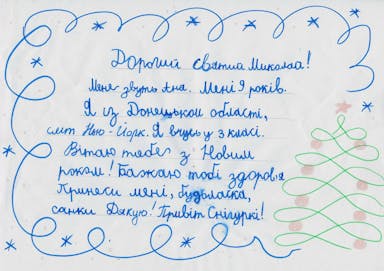 Дорогий святий Миколай!
Мене звуть Яна. Мені 9 років.
Я із Донецькой області,
смт Нью-Йорк. Я вчусь у 3 класі.
Вітаю тебе з Новим
роком! Бажаю тобі здоров'я
Принеси мені, будьласка,
санки Дякую. Привіт Снігуркі!